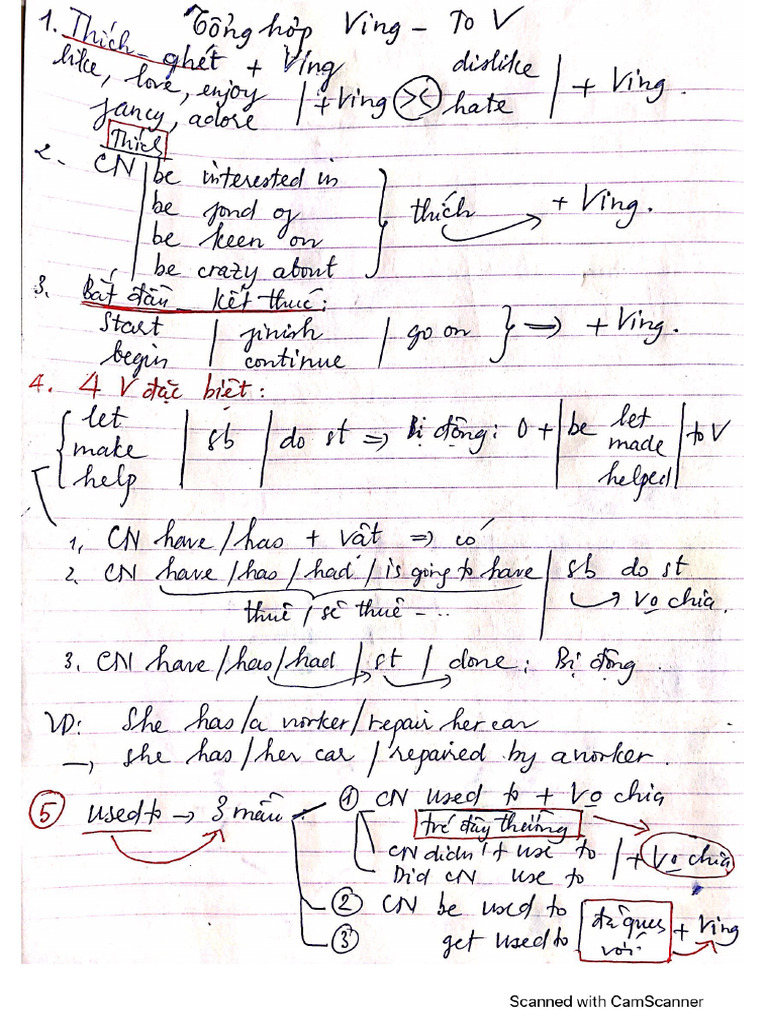 Tổng hợp Ving - To V
1. Thích - ghét + Ving
like, love, enjoy
fancy, adore | + Ving >< dislike
hate | + Ving.
Thích
2. CN | be interested in
be fond of
be keen on
be crazy about } thích + Ving.
3. Bắt đầu kết thúc:
Start | finish | go on } => + Ving.
begin continue
4. 4 V đặc biệt:
{ let
make
help | sb | do st => Bị động: O + | be let
made
helped | to V
1, CN have / has + vật => có
2. CN have / has / had / is going to have | sb do st
thuê / sẽ thuê - ... Vo chia.
3. CN have / has / had | st | done: Bị động.
VD: She has / a worker / repair her car
→ she has / her car / repaired by a worker.
5 used to → 3 mẫu
1 CN used to + Vo chia
trc đây thường
CN didn't use to
Did CN use to | + Vo chia
2 CN be used to
3 get used to | đã quen
với: + Ving
Scanned with CamScanner